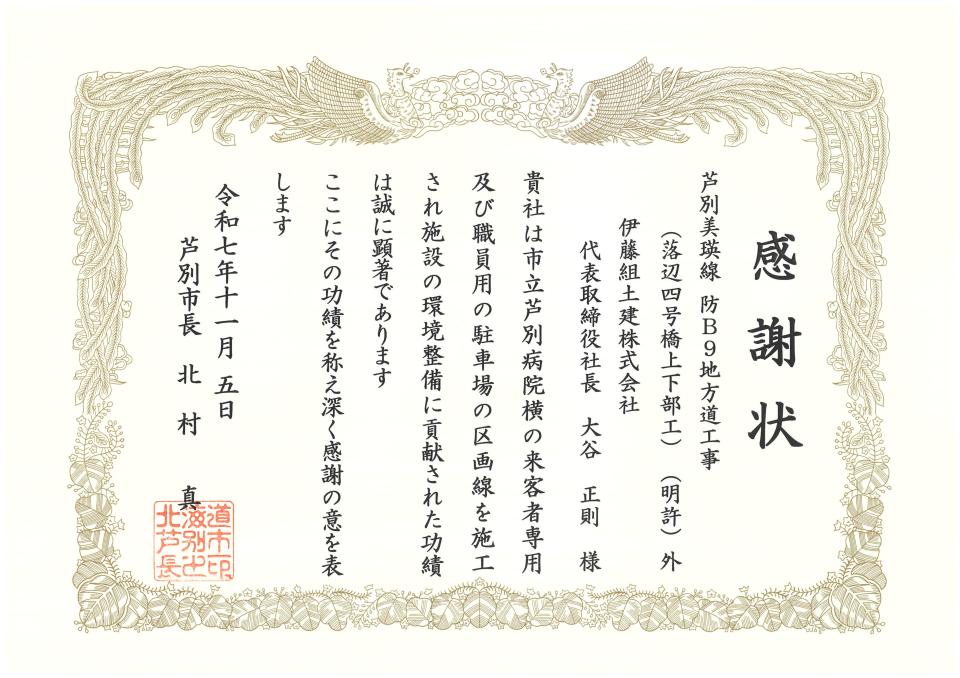 感謝状
芦別美瑛線 防B9地方道工事
（落辺四号橋上下部工）（明許）外
伊藤組土建株式会社
代表取締役社長 大谷 正則 様
貴社は市立芦別病院横の来客者専用
及び職員用の駐車場の区画線を施工
され施設の環境整備に貢献された功績
は誠に顕著であります
ここにその功績を称え深く感謝の意を表
します
令和七年十一月五日
芦別市長 北村 真
道市印
海別之
北芦長